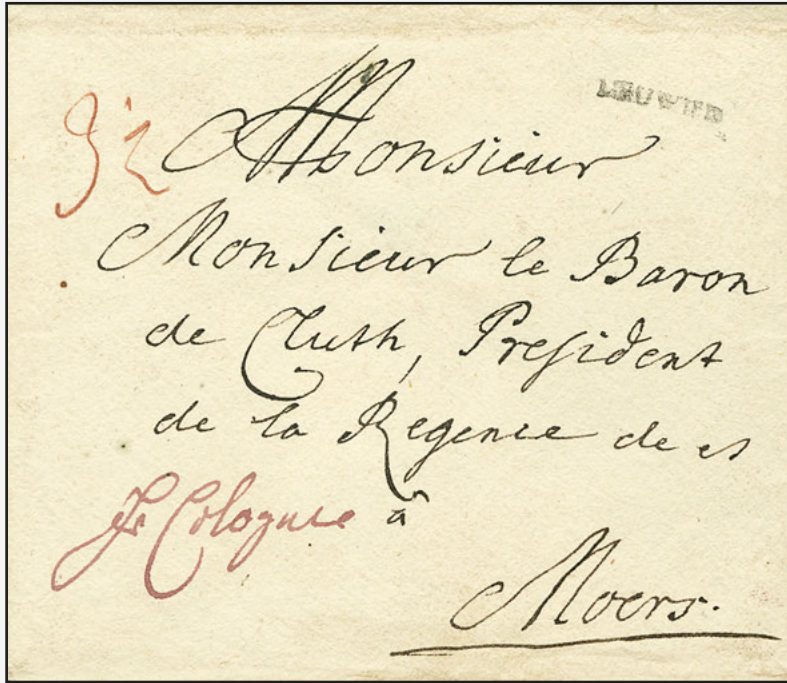 Monsieur
Monsieur le Baron
de Cluth, President
de la Regence de et
fr Cologne à
Moers.